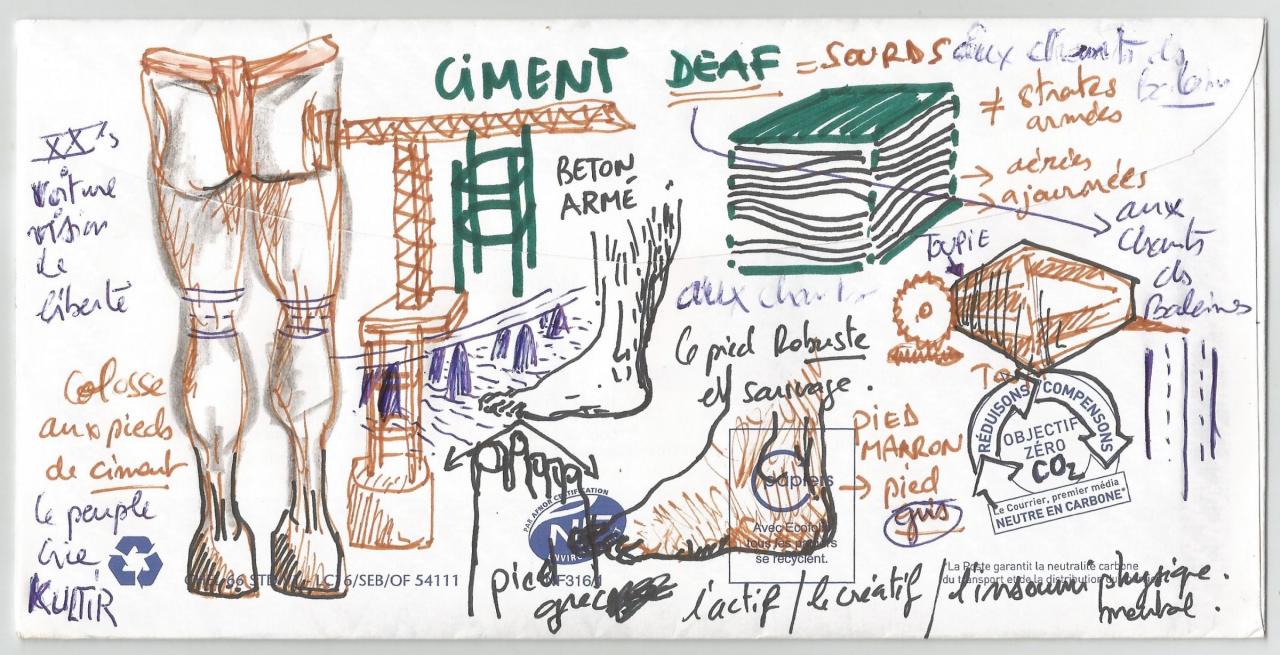 CIMENT DEAF = SOURDS aux chants des
≠ strates
armées
→ aérées
→ ajournées
aux
chants
des
Baleines
XX°s
voiture
vision
de
liberté
BETON
ARMÉ
TOUPIE
aux chants
le pied Robuste
et sauvage.
Colosse
aux pieds
de ciment
le peuple
crie
KULTIR
PIED
MARRON
→ pied
gris
RÉDUISONS COMPENSONS
OBJECTIF
ZÉRO
CO2
Le Courrier, premier média
NEUTRE EN CARBONE*
PAR AFNOR CERTIFICATION
NF
ENVIR
papiers
Avec Ecofolio
tous les papiers
se recyclent.
LC 16/SEB/OF 54111
NF316/1
*La Poste garantit la neutralité carbone
du transport et de la distribution du
pied
grec
l'actif / le créatif / l'insoumis physique.
mental.